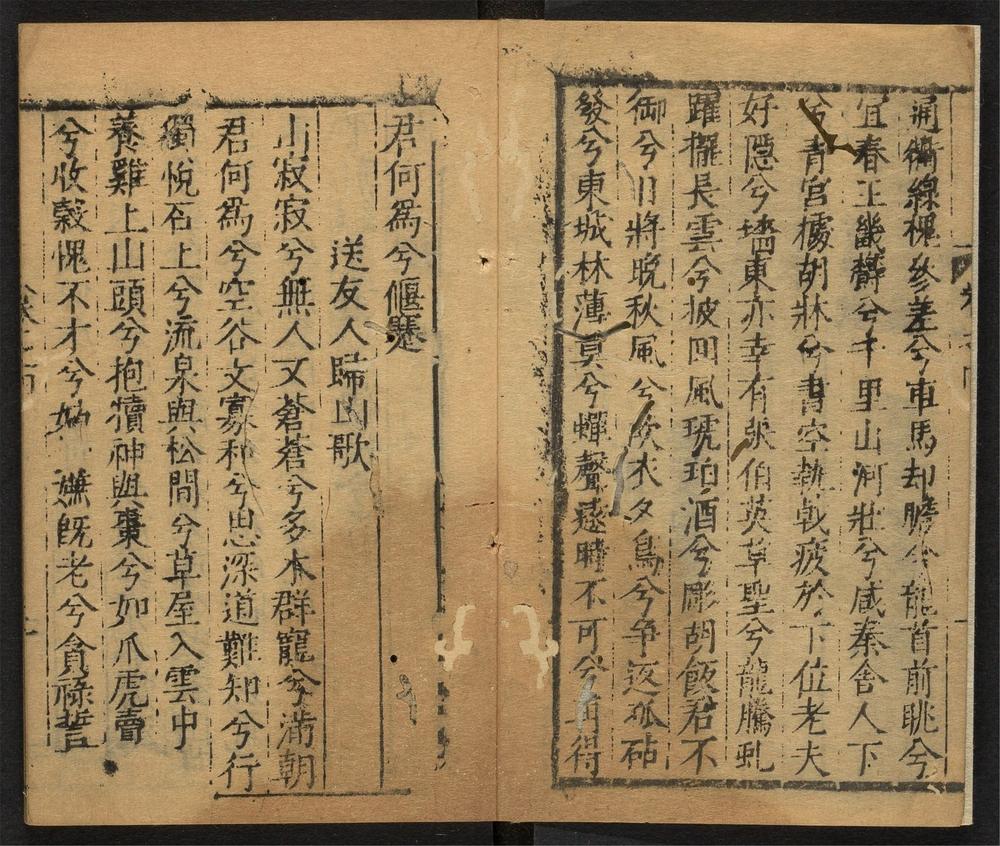 通衢綠槐參差兮車馬却瞻兮龍首前眺兮
宜春王畿鬱兮千里山河壯兮咸秦舍人下
兮青宮據胡牀兮書空執戟疲於下位老夫
好隱兮墻東亦幸有張伯英草聖兮龍騰虬
躍擺長雲兮披回風琥珀酒兮彫胡飯君不
御兮日將晚秋風兮吹衣夕鳥兮爭返孤砧
發兮東城林薄莫兮蟬聲遠時不可兮再得
君何爲兮偃蹇
送友人歸山歌
山寂寂兮無人又蒼蒼兮多木群龍兮滿朝
君何爲兮空谷文寡和兮思深道難知兮行
獨悅石上兮流泉與松間兮草屋入雲中
養雞上山頭兮抱犢神與棗兮如瓜虎賣
兮收穀愧不才兮妨 嫌旣老兮貪祿誓